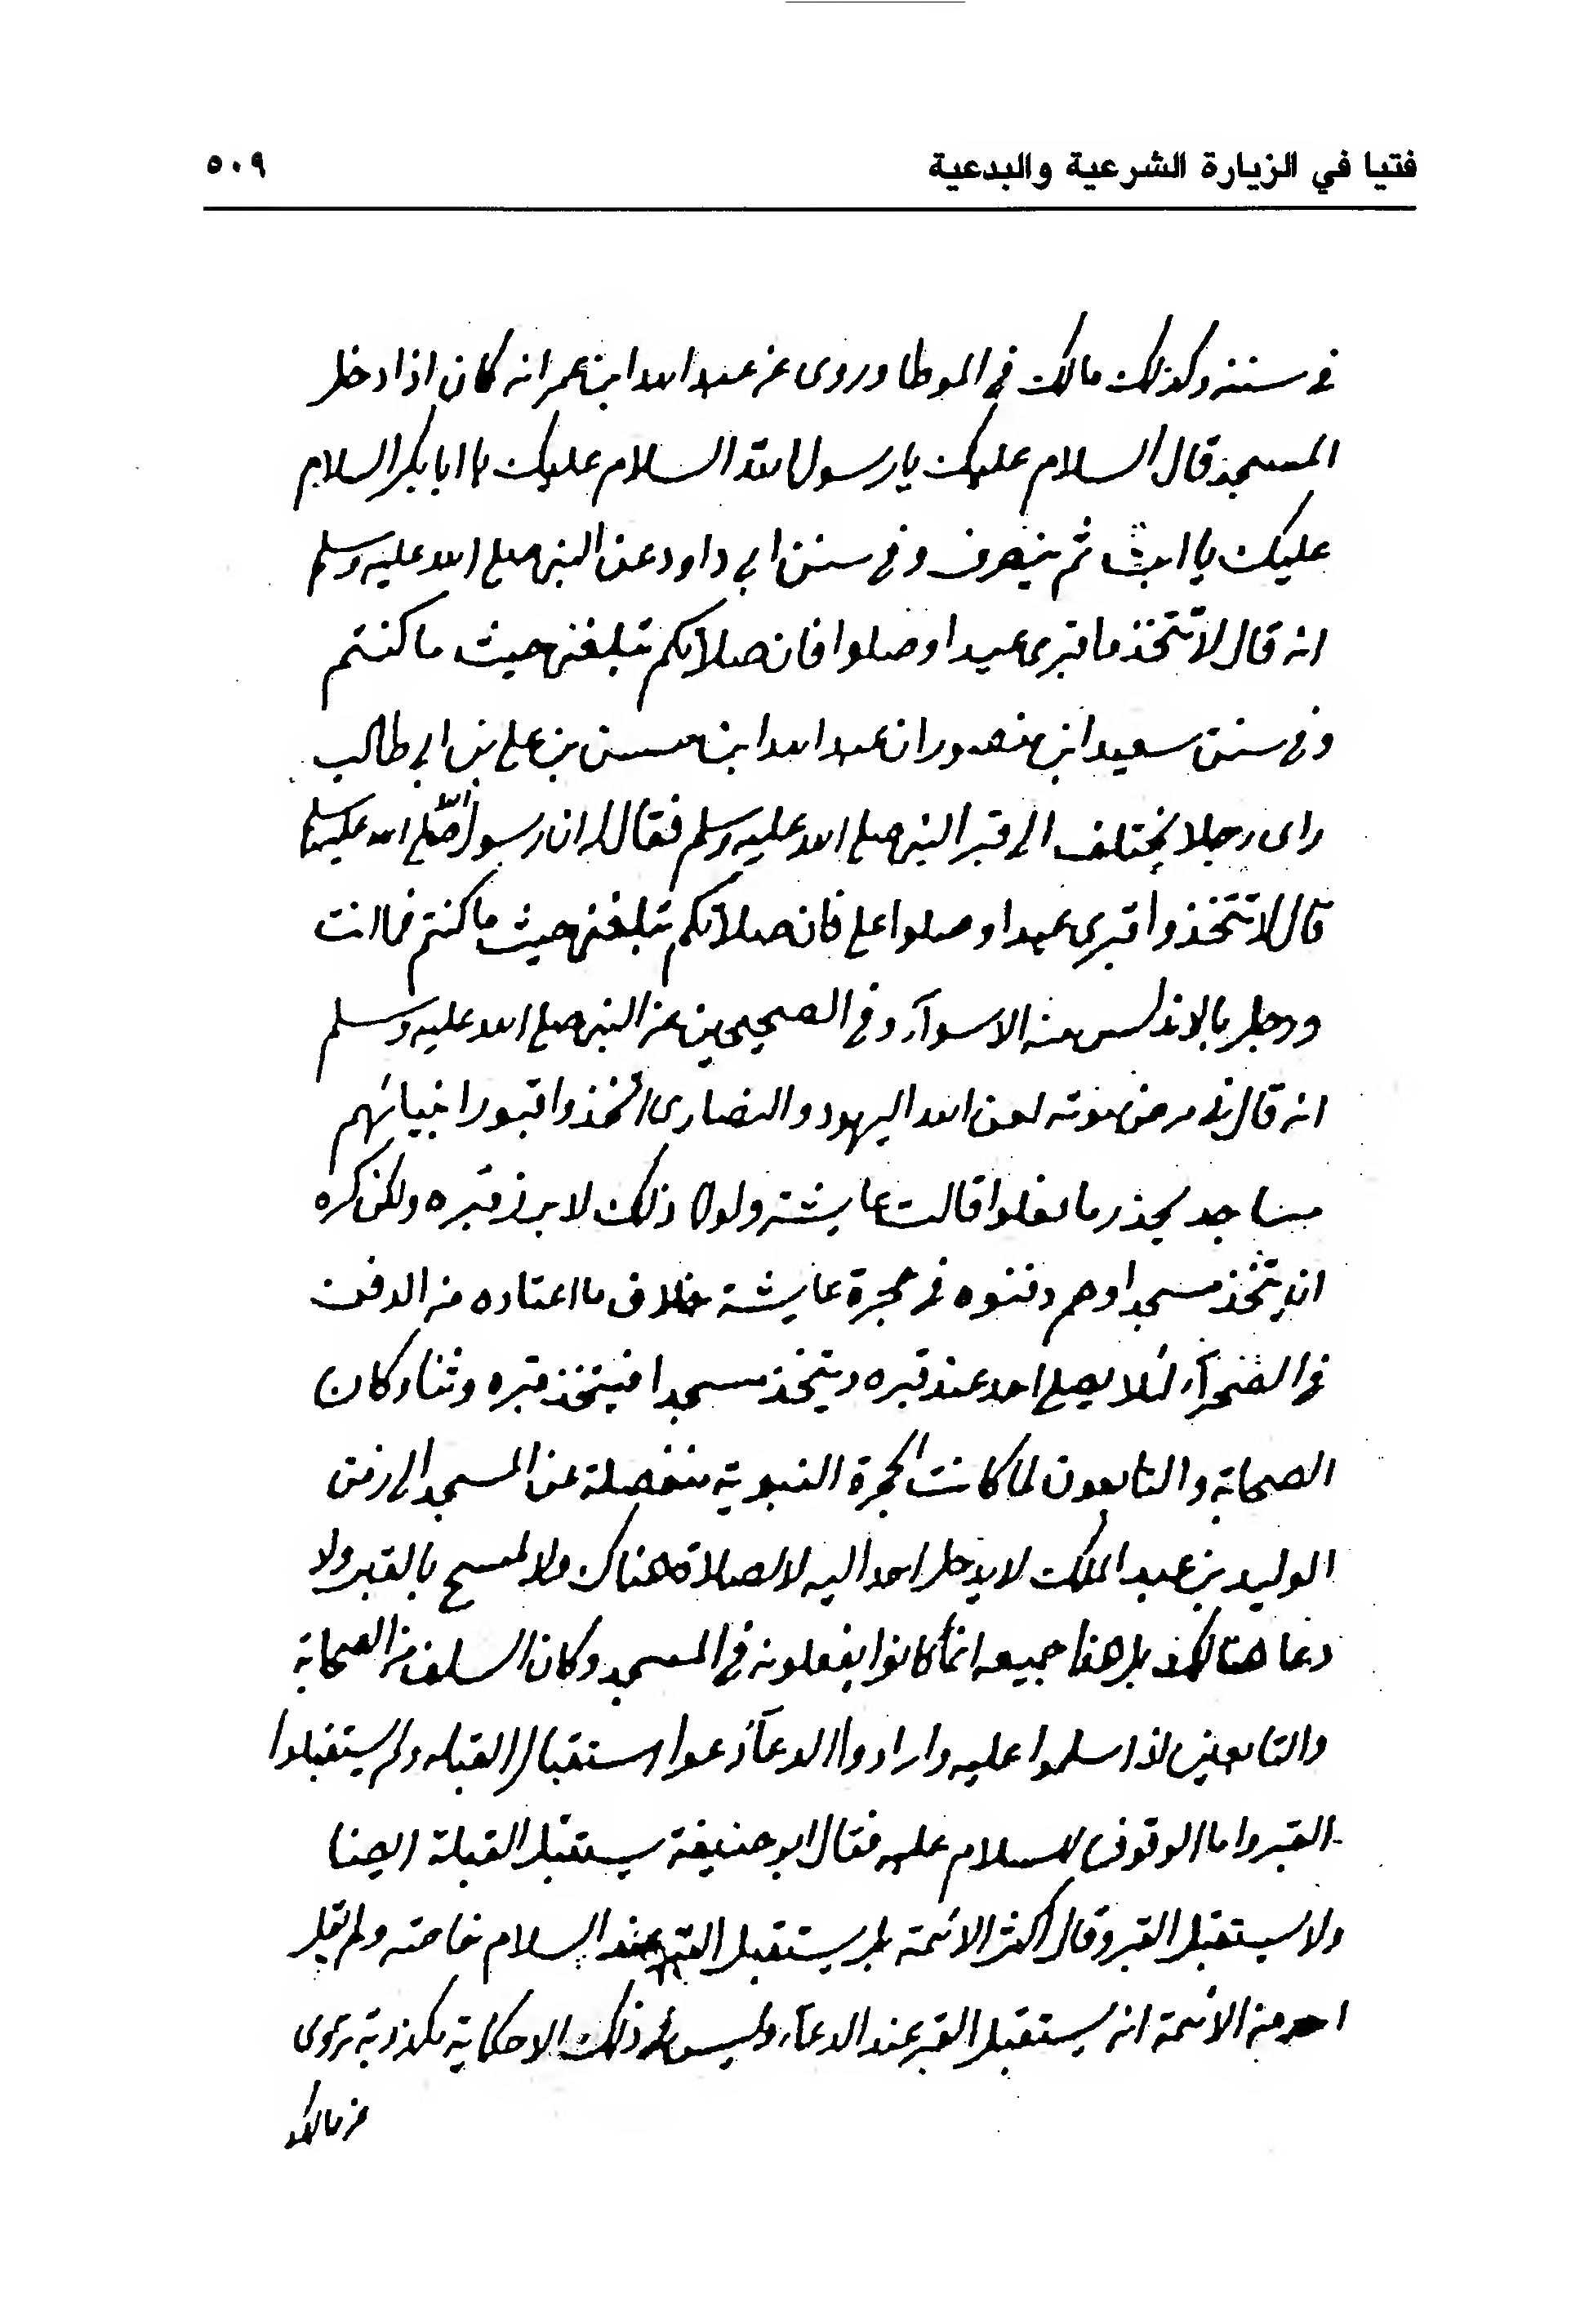 فتيا في الزيارة الشرعية والبدعية ٥٠٩
في سننه وكذلك مالك في الموطا وروى عن عبد الله ابن عمر انه كان اذا دخل
المسجد قال السلام عليك يا رسول الله السلام عليك يا ابا بكر السلام
عليك يا ابت ثم ينصرف وفي سنن ابي داود عن النبي صلى الله عليه وسلم
انه قال لا تتخذوا قبري عيدا وصلوا فان صلاتكم تبلغني حيث ما كنتم
وفي سنن سعيد ابن منصور ان عبد الله ابن حسن بن علي بن ابي طالب
راى رجلا يختلف الى قبر النبي صلى الله عليه وسلم فقال له ان رسول الله صلى الله عليه وسلم
قال لا تتخذوا قبري عيدا وصلوا علي فان صلاتكم تبلغني حيث ما كنتم فما انت
ورجل بالاندلس منه الا سوآء وفي الصحيحين عن النبي صلى الله عليه وسلم
انه قال في مرض موته لعن الله اليهود والنصارى اتخذوا قبور انبيائهم
مساجد يحذر ما فعلوا قالت عايشة ولولا ذلك لابرز قبره ولكن كره
ان يتخذ مسجدا وهم دفنوه في حجرة عايشة خلاف ما اعتاده من الدفن
في الصحرآء لئلا يصلي احد عند قبره ويتخذ مسجدا فيتخذ قبره وثنا وكان
الصحابة والتابعون لما كانت الحجرة النبوية منفصلة عن المسجد الى زمن
الوليد بن عبد الملك لا يدخل احد اليه لا لصلاة هناك ولا لمسح بالقبر ولا
دعا هنالك بل هذا جميعه انما كانوا يفعلونه في المسجد وكان السلف من الصحابة
والتابعين اذا سلموا عليه وارادوا الدعآء دعوا استقبال القبله ولم يستقبلوا
القبر واما الوقوف للسلام عليه فقال ابو حنيفة يستقبل القبلة ايضا
ولا يستقبل القبر وقال اكثر الائمة بل يستقبل القبر عند السلام خاصة ولم يقل
احد من الائمة انه يستقبل القبر عند الدعآء وليس في ذلك الا حكاية مكذوبة تروى
عن مالك